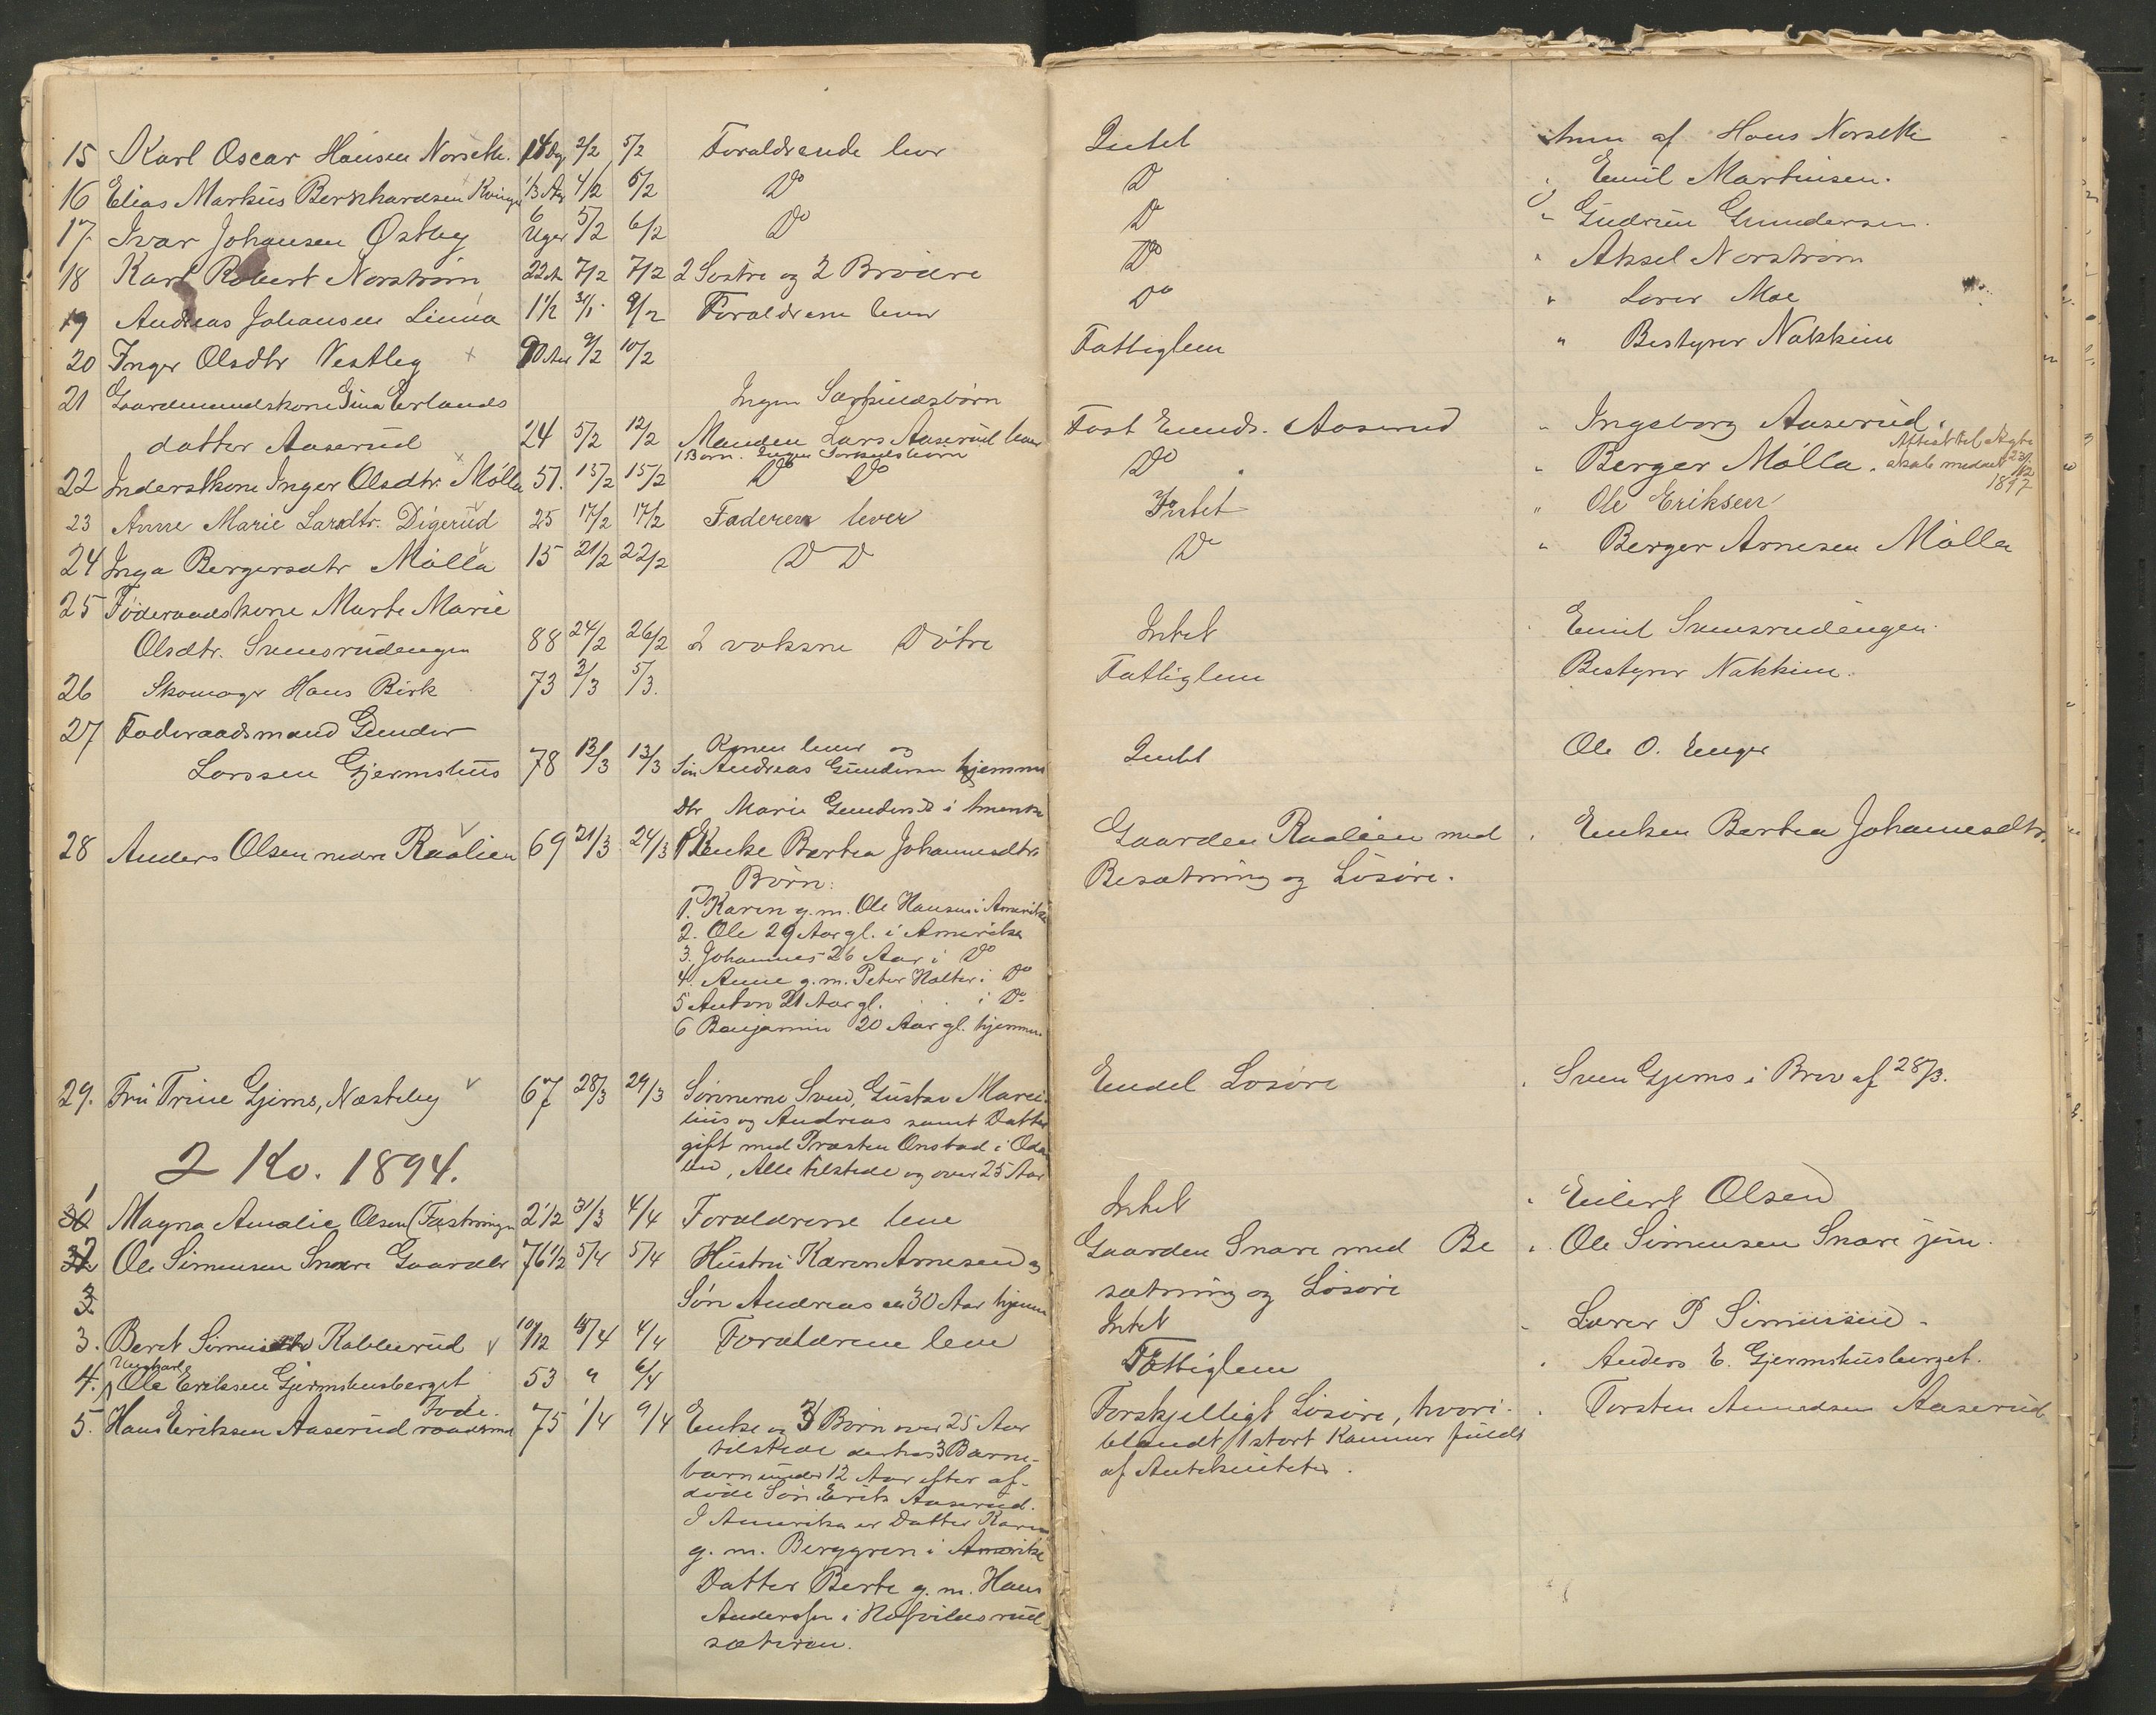 15 Karl Oscar Hansen Norseth. 14 Dg 2/2 5/2 Forældrende lever Intet Anm af Hans Norseth
16 Elias Markus Bernhardsen 1/3 Aar 4/2 5/2 Do D " Emil Martinsen.
17. Ivar Johansen Østby 6 Uger 5/2 6/2 Do Do " Gudrun Gundersen.
18 Karl Robert Norstrøm 22 7/2 7/2 2 Søstre og 2 Brødre Do " Aksel Norstrøm
19 Andreas Johansen Linna 1 1/2 31/1 9/2 Forældrene lever Do " Lærer Moe
20 Inger Olsdtr Vestby 90 Aar 9/2 10/2 Fattiglem " Bestyrer Nakkim
21 Gaardmandskone Gina Erlands Ingen Særkuldsbørn
datter Aaserud 24 5/2 12/2 Manden Lars Aaserud lever Fast Eiend. Aaserud " Ingeborg Aaserud.
1 Barn. Ingen Særkuldsbørn
22 Inderstkone Inger Olsdtr. Mølla 51. 13/2 15/2 Do Do Do " Berger Mølla.
23 Anne Marie Larsdtr. Digerud 25 17/2 17/2 Faderen lever Intet " Ole Eriksen
24 Inga Bergersdtr Mølla 15 21/2 22/2 D D Do " Berger Arnesen Mølla
25 Føderaadskone Marte Marie
Olsdtr. Svensrudengen 88 24/2 26/2 2 voksne Døtre Intet Emil Svensrudengen.
26 Skomager Hans Birk 73 3/3 5/3. Fattiglem Bestyrer Nakkim.
27 Foderaadsmand Gunder
Larssen Gjermshus 78 12/3 13/3 Konen lever og Intet Ole O. Enger
Søn Andreas Gundersen hjemme
Dtr Marie Gundersd i Amerika
28 Anders Olsen nedre Raalien 69 21/3 24/3 Enke Bertea Johannesdtr. Gaarden Raalien med " Enken Bertea Johannesdtr.
Børn: Besætning og Løsøre.
1. Karen g.m. Ole Hansen i Amerika
2. Ole 29 Aar gl. i Amerika
3. Johannes 26 Aar i Do
4. Anne g.m. Peter Holter i Do
5 Anton 21 Aar gl. i Do
6 Benjamin 20 Aar gl. hjemme.
29. Fru Trine Gjems, Næsteby 67 28/3 29/3 Sønnerne Svend, Gustav Marci- Endel Løsøre " Sven Gjems i Brev af 28/3.
lius og Andreas samt Datter
gift med Præsten Onstad i Oda
len, Alle tilstede og over 25 Aar
2 Kv. 1894.
1 30 Magna Amalie Olsen 2 1/2 31/3 4/4 Forældrene leve Intet " Eilert Olsen
2 Ole Simensen Snare Gaardbr 76 1/2 5/4 5/4 Hustru Karen Arnesen og Gaarden Snare med Be " Ole Simensen Snare jun.
3. Søn Andreas 30 Aar hjemme sætning og Løsøre
3. Beret Simensdtr Kabberud 10/12 4/4 Forældrene leve Intet " Lærer P Simensen.
4. Ungkarl Ole Eriksen Gjermshusberget 53 " 6/4 Fattiglem " Anders E. Gjermshusberget.
5. Hans Eriksen Aaserud Føde-raadsmd 75 1/4 9/4 Enke og 3 Børn over 25 Aar Forskjelligt Løsøre, hvori- " Torsten Amundsen Aaserud
tilstede derhos 3 Barne- blandt 1 stort Kammer fuldt
barn under 12 Aar efter af- af Antikviteter.
døde Søn Erik Aaserud.
I Amerika er Datter Karen
g. m. Berggren i Amerika
Datter Berte g. m. Hans
Anderssen i
sæteren.